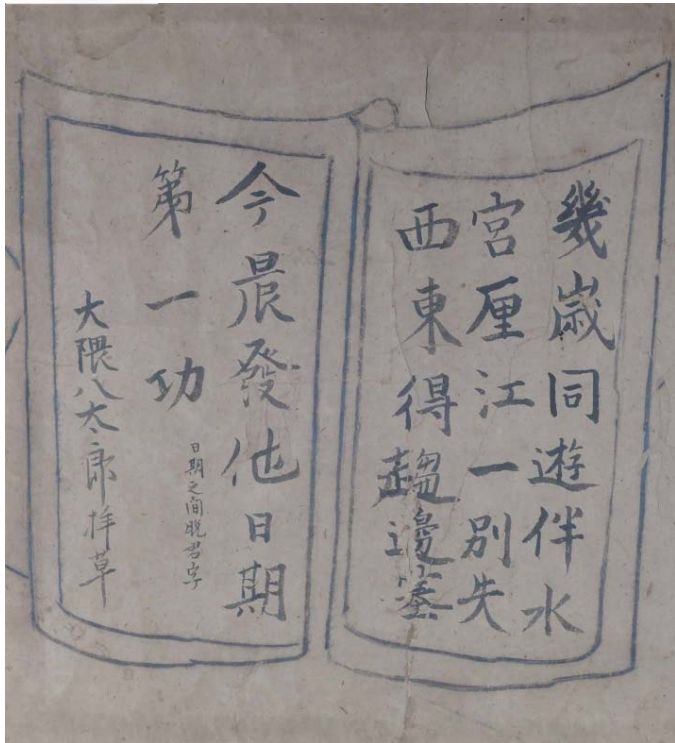 幾歳同遊伴水
宮厓江一別失
西東得趨邊塞
今晨發他日期
第一功
日期之间脱君字
大隈八太郎拝草